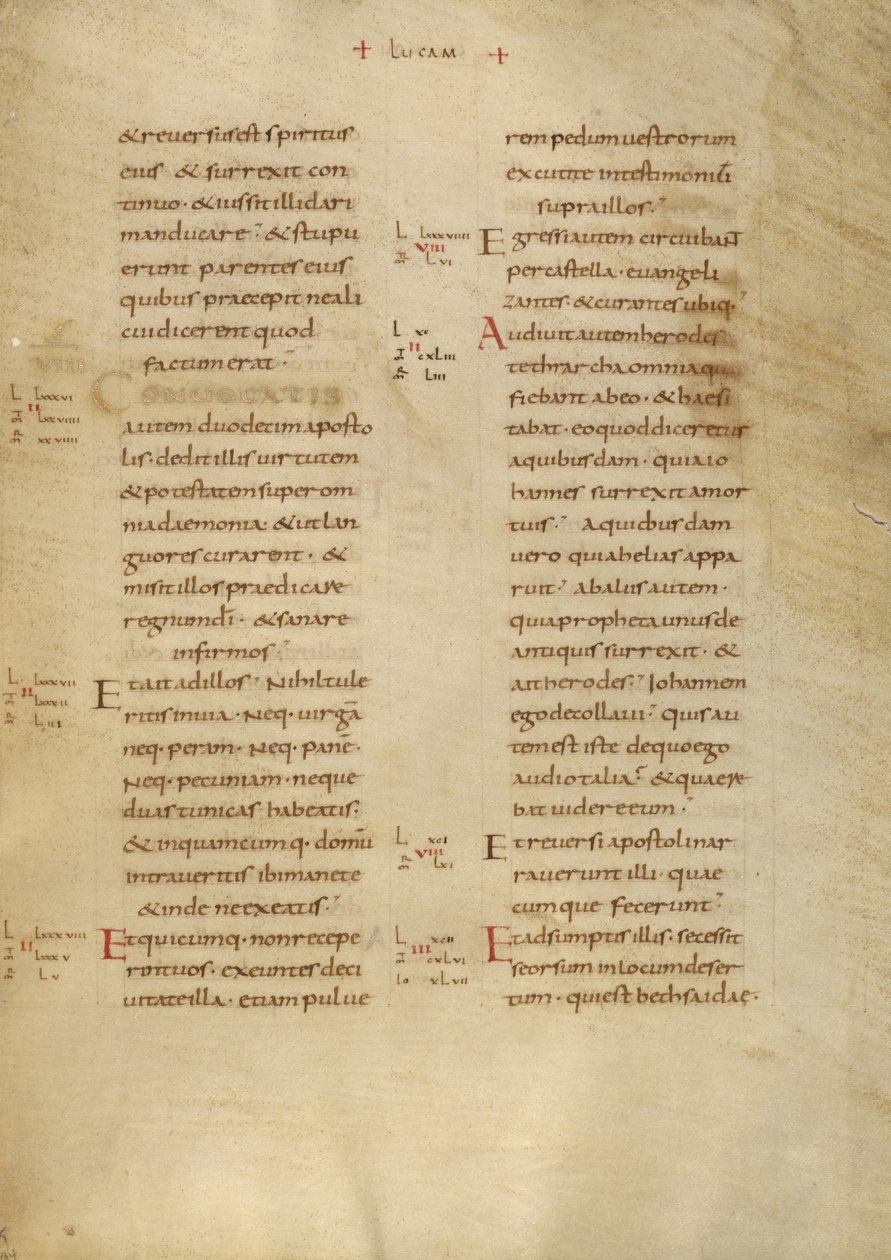 + LUCAM +
& reuersus est spiritus
eius & surrexit con
tinuo · & iussit illi dari
manducare · & stupu
erunt parentes eius
quibus praecepit ne ali
cui dicerent quod
factum erat ·
VIIII
CONUOCATIS
L Lxxxvi
II
m Lxxviiii
m xxviiii
autem duodecim aposto
lis · dedit illis uirtutem
& potestatem super om
nia daemonia · & ut lan
guores curarent · &
misit illos praedicare
regnum dī · & sanare
infirmos ·
L Lxxxvii
II
m Lxxxii
m Liii
Et ait ad illos · Nihil tule
ritis in uia · Neq · uirgā
neq · peram · Neq · panē ·
Neq · pecuniam · neque
duas tunicas habeatis ·
& in quamcumq · domū
intraueritis ibi manete
& inde ne exeatis ·
L Lxxxviii
II
m Lxxxv
m Lv
Et quicumq · non recepe
rint uos · exeuntes de ci
uitate illa · etiam pulue
rem pedum uestrorum
excutite in testimoniū
supra illos ·
L Lxxxviiii
VIII
m Lvi
Egressi autem circuibant
per castella · euangeli
zantes · & curantes ubiq ·
L xc
II
m cxLiii
m Liii
Audiuit autem herodes
tethrarcha omnia quae
fiebant ab eo · & haesi
tabat · eo quod diceretur
a quibusdam · quia io
hannes surrexit a mor
tuis · A quibusdam
uero quia helias appa
ruit · ab aliis autem ·
quia propheta unus de
antiquis surrexit · &
ait herodes · Johannem
ego decollaui · Quis au
tem est iste de quo ego
audio talia · & quaere
bat uidere eum ·
L xci
VIII
m Lxi
Et reuersi apostoli nar
rauerunt illi · quae
cumque fecerunt ·
L xcii
III
m cxLvi
io xLvii
Et adsumptis illis · secessit
seorsum in locum deser
tum · qui est bethsaidae ·